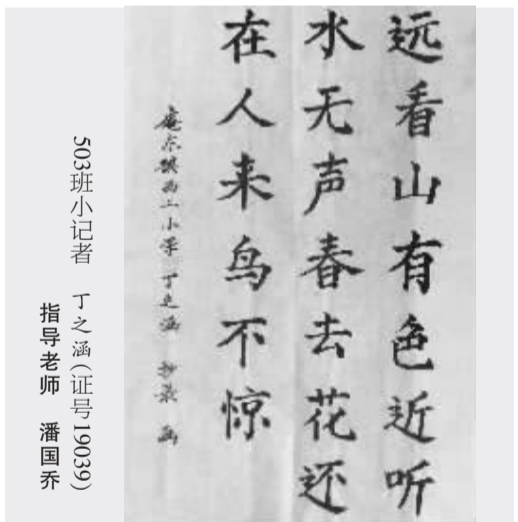 远看山有色近听
水无声春去花还
在人来鸟不惊
庵东镇西二小学丁之涵 抄录
503班小记者 丁之涵(证号19039)
指导老师 潘国乔